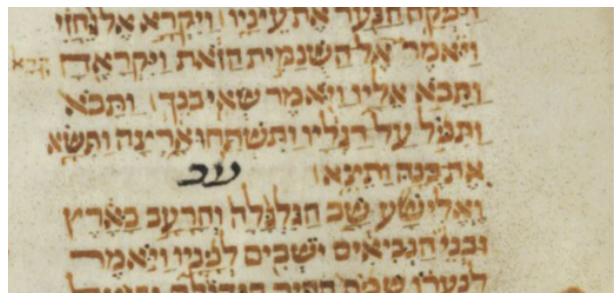 ויפקח הנער את עיניו ויקרא אל גחזי
ויאמר אל השנמית הזאת ויקראה קרא
ותבא אליו ויאמר שאי בנך ותבא
ותפל על רגליו ותשתחו ארצה ותשא
את בנה ותצא
עב
ואלישע שב הגלגלה והרעב בארץ
ובני הנביאים ישבים לפניו ויאמר
לנערו שפת הסיר הגדולה